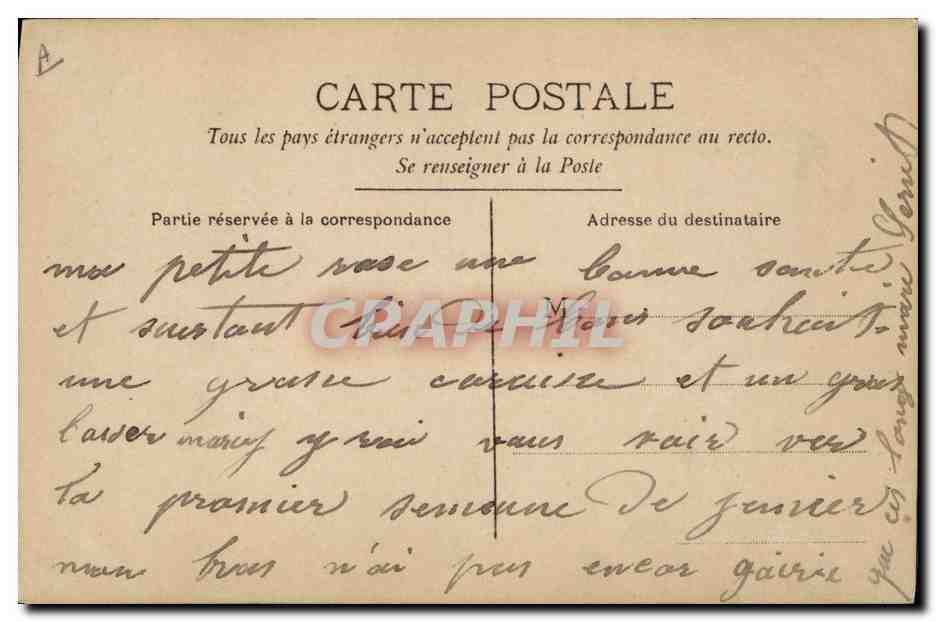 A
CARTE POSTALE
Tous les pays étrangers n'acceptent pas la correspondance au recto.
Se renseigner à la Poste
Partie réservée à la correspondance
Adresse du destinataire
ma petite rose une bonne santé
et surtout bien de bons souhait
M
CPARPHIL
une grosse caresse et un gros
baiser marcel y rai vous voir ver
la promier semaine de janvier
mon bras n'ai pas encor gairie
que ces long mare